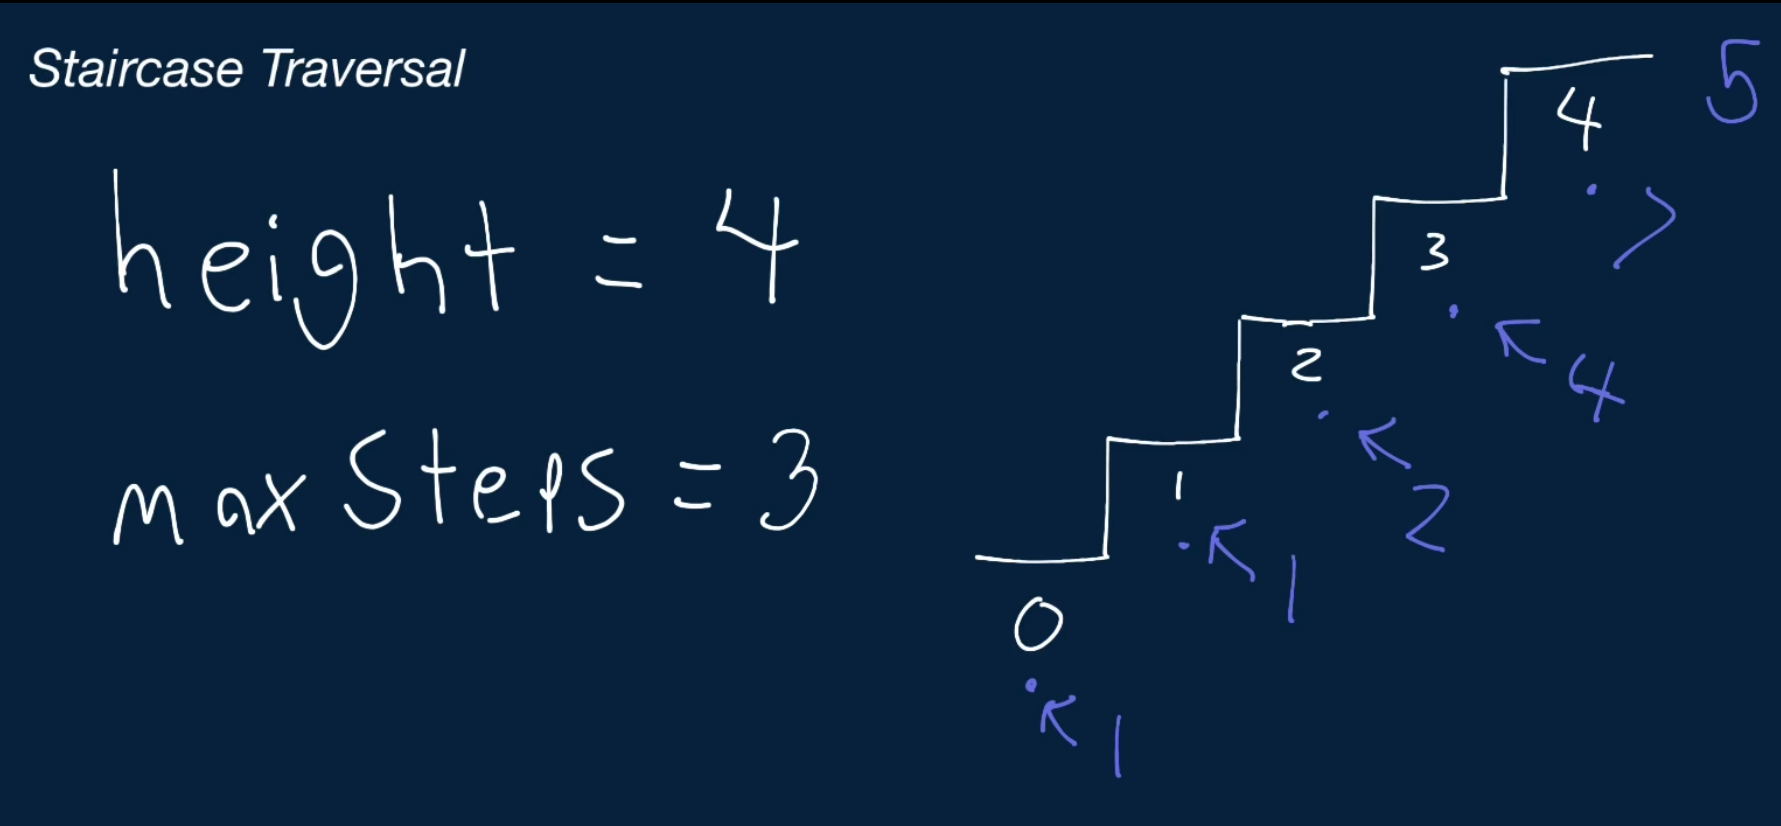 Staircase Traversal
height = 4
max Steps = 3
5
4
7
3
4
2
2
1
1
0
1